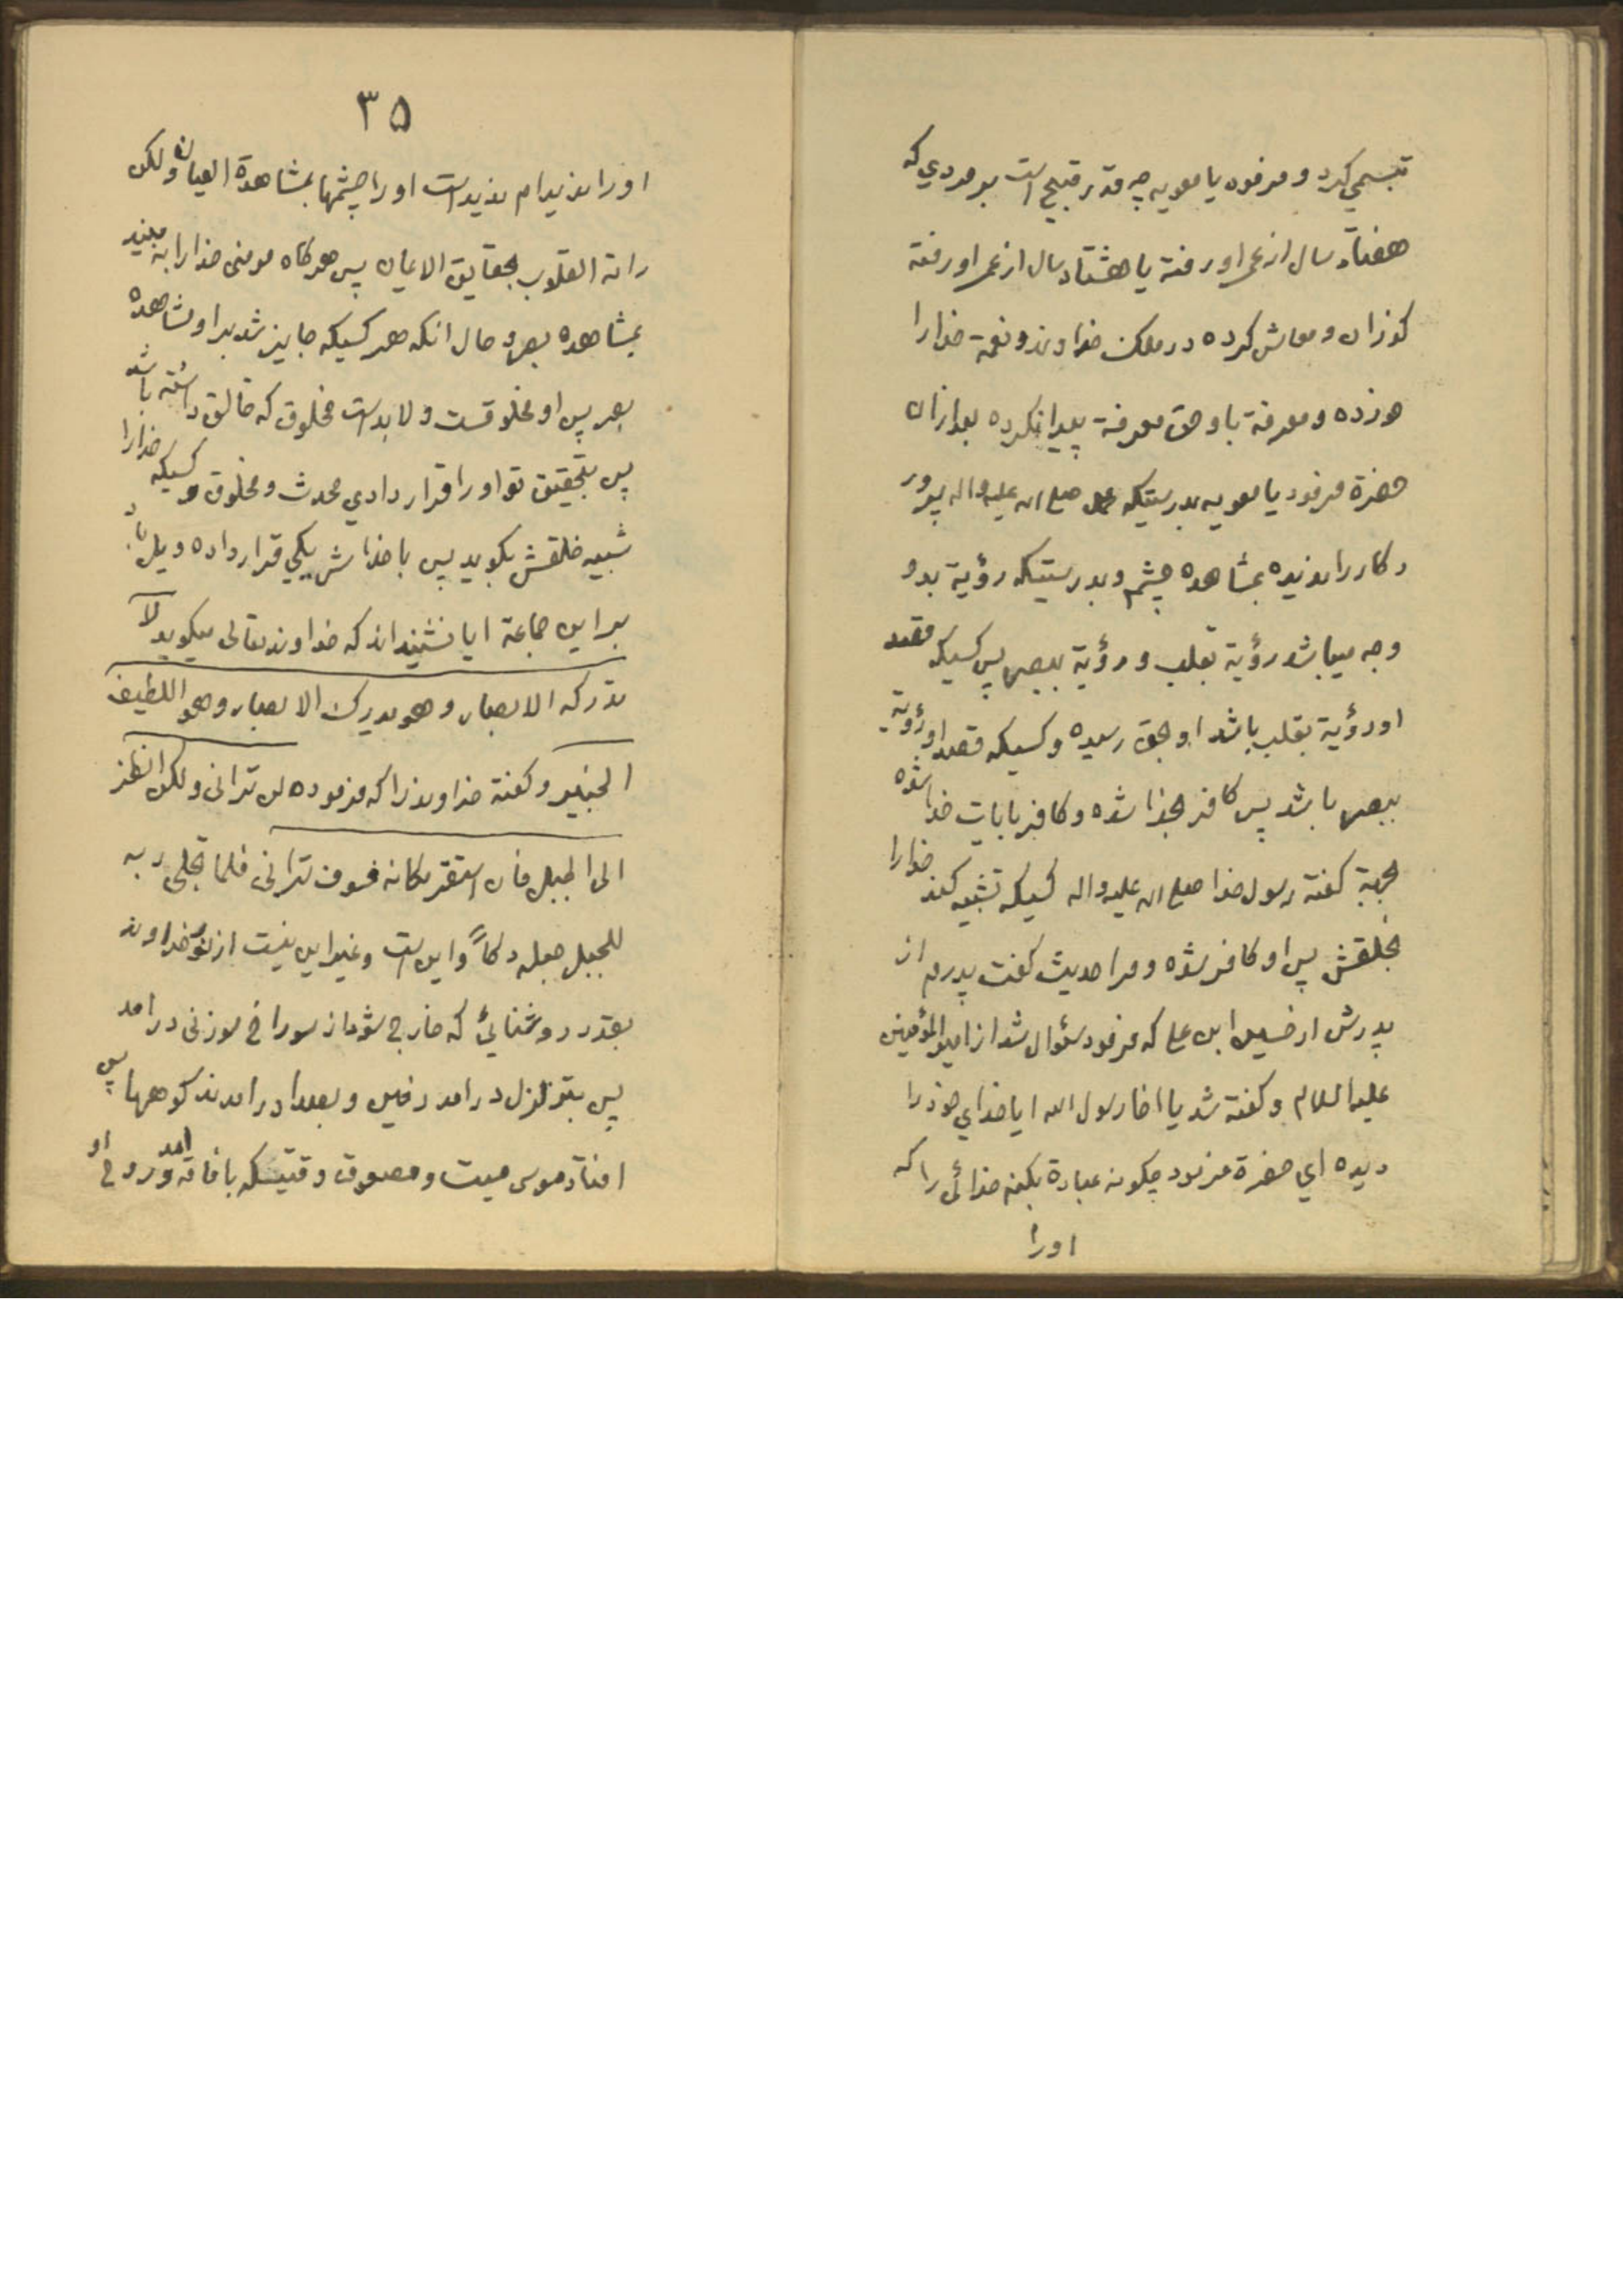 تبسمي كرد و فرفود يا معويه چه قدر قبيح است بر مردي كه
هفتاد سال از عمر او رفته يا هشتاد سال از عمر او رفته
كوذران و معاش كرده در ملك خداوند و نعمة خدارا
خورده و معرفة باو حق معرفة پيدا نكرده بعد ازان
حضرة فرفود يا معويه بدرستيكه محمد صلى الله عليه واله پرور
دكار را نديده بمشاهده چشم و بدرستيكه رؤية بدو
وجه ميباشد رؤية بقلب و رؤية ببصر پس كسيكه قصد
او رؤية بقلب باشد او بحق رسيده و كسيكه قصد او رؤية
ببصر باشد پس كافر بخدا شده و كافر بايات خدا شده
بجهة كفته رسول خدا صلى الله عليه واله كسيكه تشبيه كند خدارا
بخلقش پس او كافر شده و مرا حديث كفت پدرم از
پدرش از حسين ابن على كه فرفود سئوال شد از امير المؤمنين
عليه السلام و كفته شد يا اخا رسول الله ايا خداي خود را
ديده اي حضرة فرفود چكونه عبادة بكنم خدائى را كه
اورا
۳۵
اورا نديدام نديدست اورا چشمها بمشاهدة العيان ولكن
راته القلوب بحقايق الايمان پس هركاه مومنى خدارا به بيند
بمشاهده بصر و حال انكه هر كسيكه جايز شد بر او مشاهده
بصر پس او مخلوقست و لا بدست مخلوق كه خالق داشته باشد
پس بتحقيق تو اورا قرار دادي محدث و مخلوق و كسيكه خدارا
شبيه خلقش بكويد پس با خدا شريكي قرار داده ويل باد
بر اين جماعة ايا نشنيداند كه خداوند تعالى ميكويد لا
تدركه الابصار و هو يدرك الابصار و هو اللطيف
الخبير و كفته خداوند را كه فرفوده لن ترانى ولكن انظر
الى الجبل فان استقر مكانه فسوف ترانى فلما تجلى ربه
للجبل جعله دكاً و اين است و غير اين نيست از نور خداوند
بقدر روشنائي كه خارج شود از سوراخ سوزنى درامد
پس بتزلزل درامد زمين و بصدا درامدند كوهها پس
افتاد موسى ميت و مصعوق وقتيكه بافاقه امد و روح او